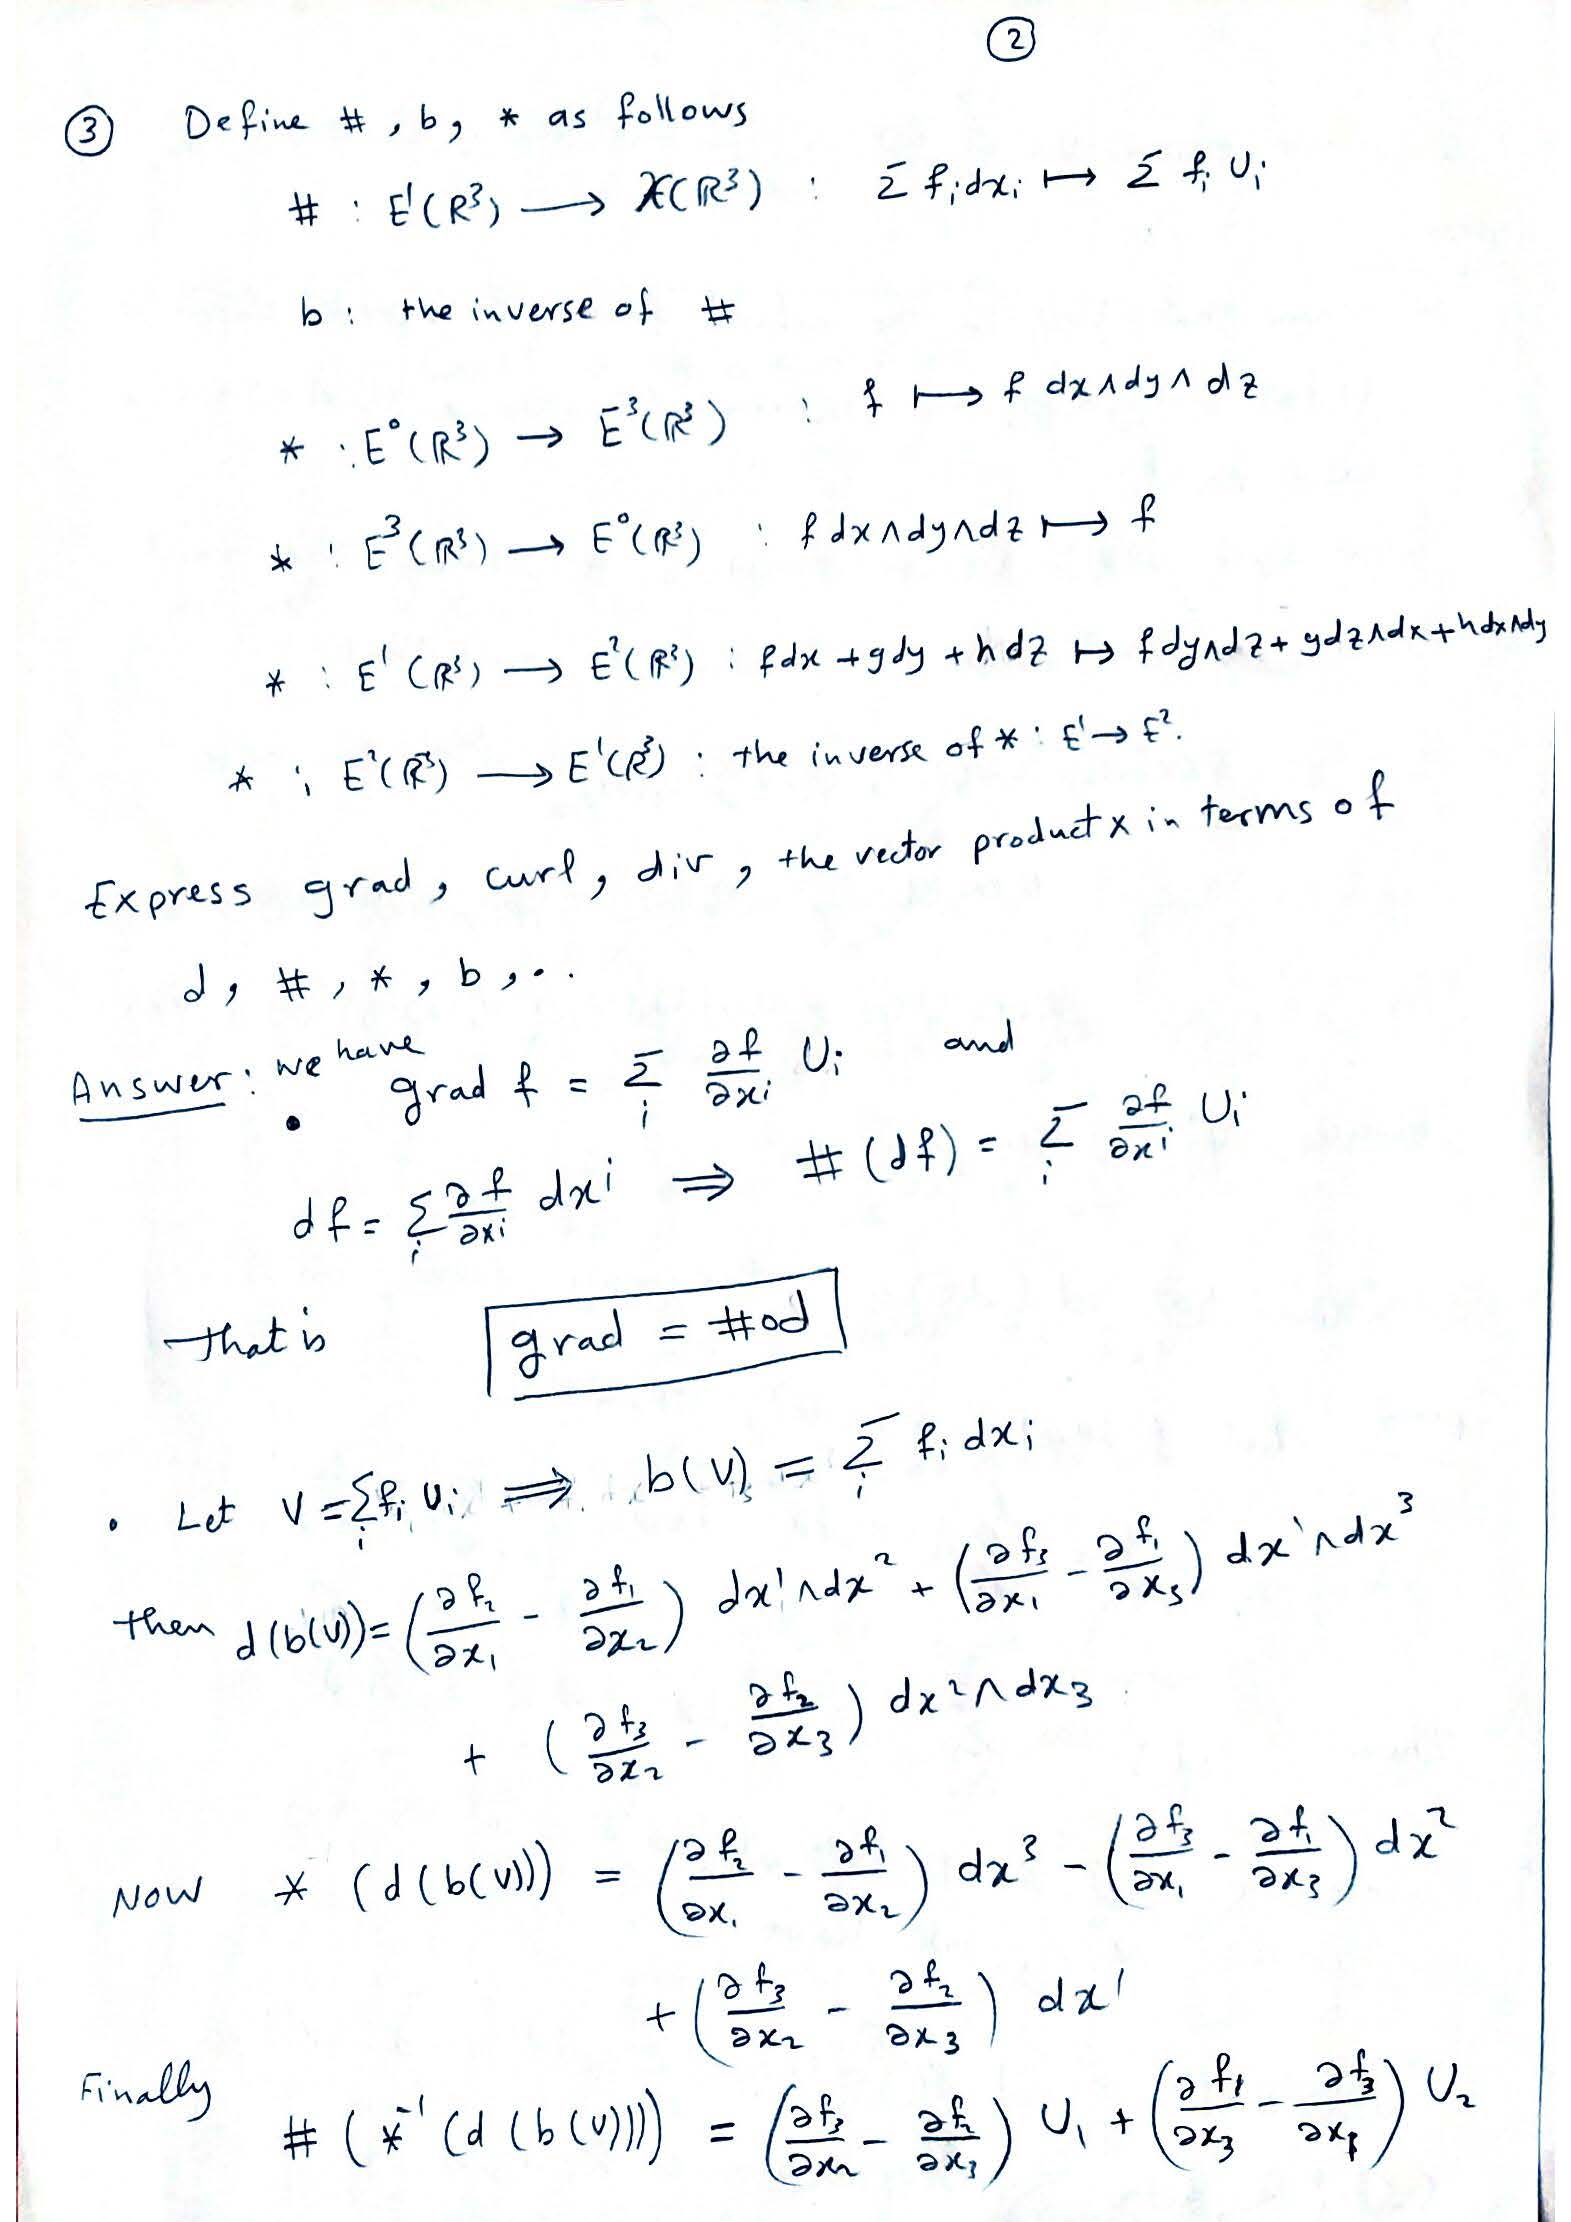 ②
③ Define #, b, * as follows
# : E¹(R³) ⟶ 𝒳(R³) : Σ fᵢdxᵢ ⟼ Σ fᵢ Uᵢ
b : the inverse of #
* : E⁰(R³) → E³(R³) : f ⟼ f dx∧dy∧dz
* : E³(R³) ⟶ E⁰(R³) : f dx∧dy∧dz ⟼ f
* : E¹(R³) ⟶ E²(R³) : fdx + gdy + h dz ↦ f dy∧dz + gdz∧dx + hdx∧dy
* : E²(R³) ⟶ E¹(R³) : the inverse of * : E¹→E².
Express grad, curl, div, the vector product x in terms of
d, #, *, b, ...
Answer: we have
• grad f = Σᵢ ∂f/∂xᵢ Uᵢ and
df = Σᵢ ∂f/∂xi dxⁱ ⟹ # (df) = Σᵢ ∂f/∂xⁱ Uᵢ
That is grad = #od
• Let V = Σᵢ fᵢ Uᵢ ⟹ b(V) = Σᵢ fᵢ dxᵢ
then d(b(V)) = (∂f₂/∂x₁ - ∂f₁/∂x₂) dx¹∧dx² + (∂f₃/∂x₁ - ∂f₁/∂x₃) dx¹∧dx³
+ (∂f₃/∂x₂ - ∂f₂/∂x₃) dx²∧dx₃
Now * (d(b(V))) = (∂f₂/∂x₁ - ∂f₁/∂x₂) dx³ - (∂f₃/∂x₁ - ∂f₁/∂x₃) dx²
+ (∂f₃/∂x₂ - ∂f₂/∂x₃) dx¹
Finally
# (*⁻¹(d(b(V)))) = (∂f₃/∂x₂ - ∂f₂/∂x₃) U₁ + (∂f₁/∂x₃ - ∂f₃/∂x₁) U₂